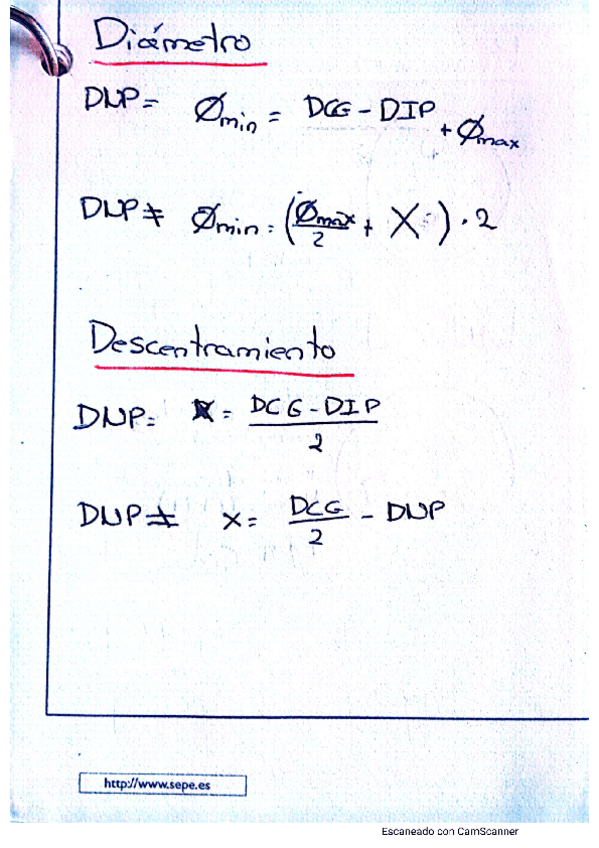 Diámetro
DNP= Ømin = DCG - DIP + Ømax
DNP≠ Ømin = (Ømax/2 + X) · 2
Descentramiento
DNP= X = DCG - DIP / 2
DNP≠ x = DCG/2 - DNP
http://www.sepe.es
Escaneado con CamScanner